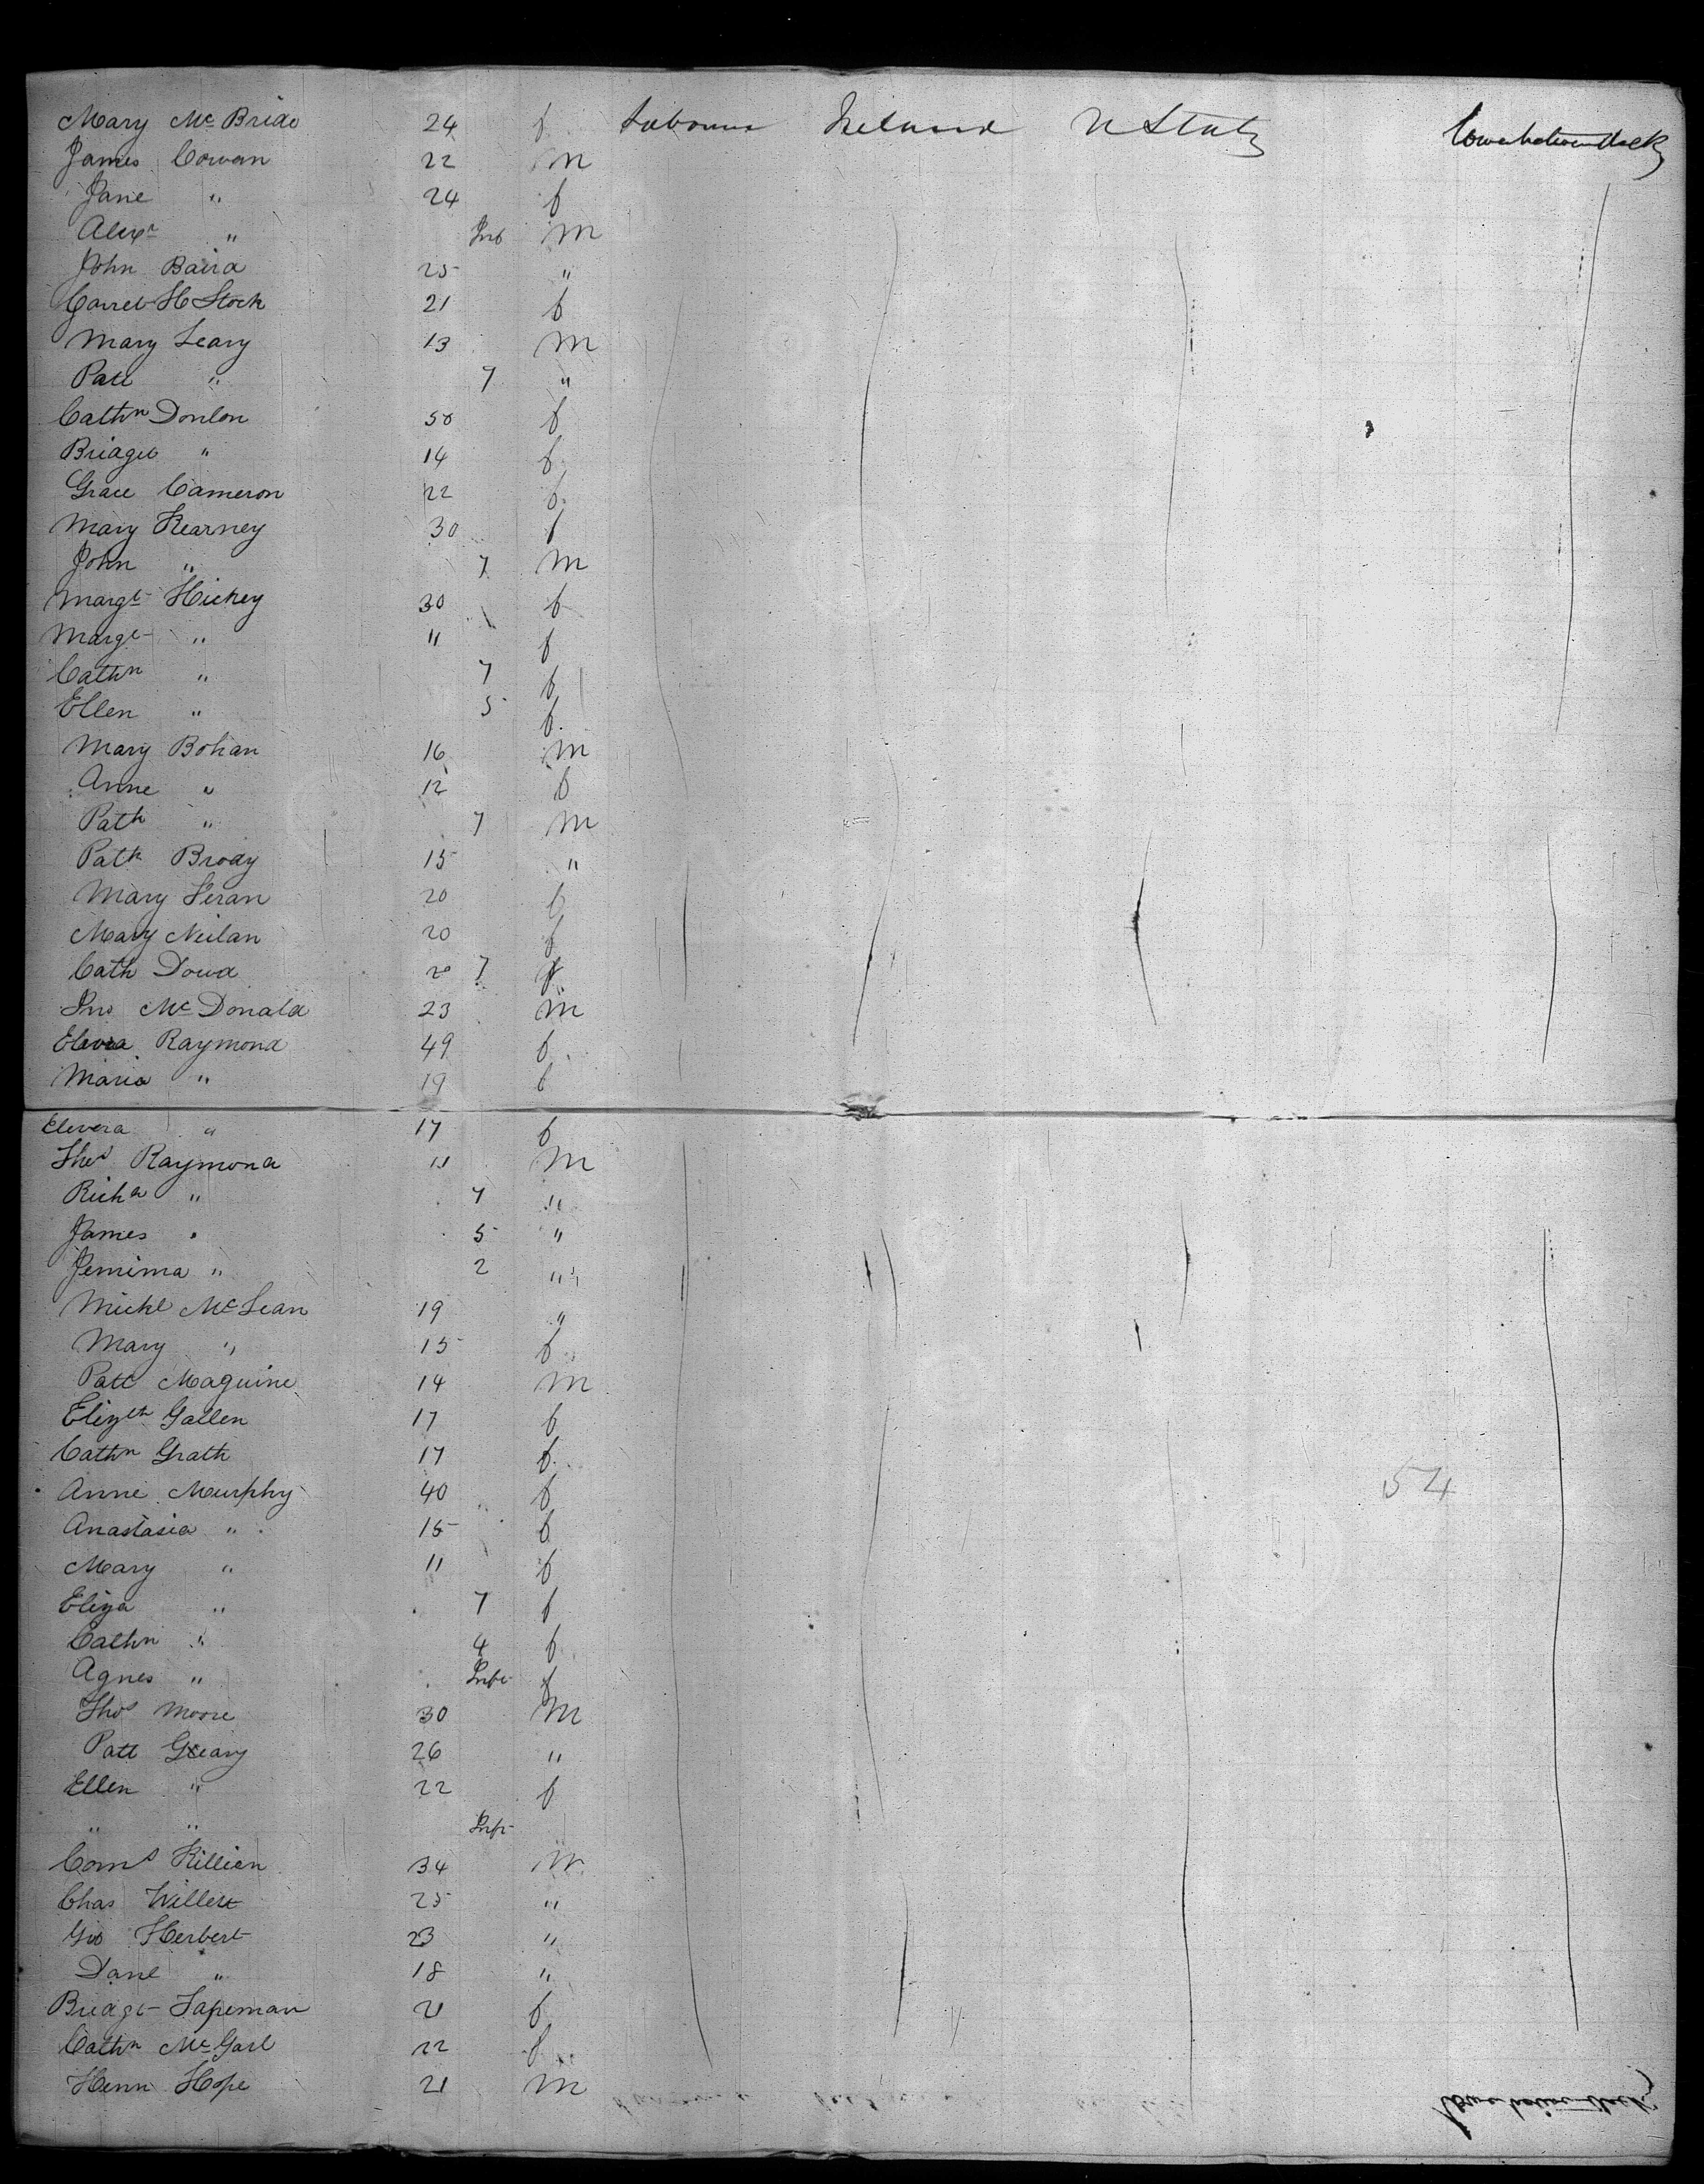 Mary McBride 24 f Labourer Ireland U States Lower between deck
James Cowan 22 m
Jane " 24 f
Alexr " Inf m
John Baird 25 "
21 f
Mary Leary 13 m
Patt " 7 "
Cathn Donlon 50 f
Bridget " 14 f
Grace Cameron 22 f
Mary Kearney 30 f
John " 7 m
Margt Hickey 30 f
Margt " 11 f
Cathn " 7 f
Ellen " 5 f
Mary Bohan 16 m
Anne " 12 f
Patk " 7 m
Patk Brody 15 "
Mary 20 f
Mary Neilan 20 f
Cath Dowd 20 7 f
Jno McDonald 23 m
Raymond 49 f
Maria " 19 f
Elevera " 17 f
Thos Raymond 11 m
Richd " 7 "
James " 5 "
Jemima " 2 "
Michl McLean 19 "
Mary " 15 f
Patt Maguine 14 m
Elizth Gallen 17 f
Cathn Grath 17 f
Anne Murphy 40 f 54
Anastasia " 15 f
Mary " 11 f
Eliza " 7 f
Cathn " 4 f
Agnes " Inft f
Thos Moore 30 m
Patt Geary 26 "
Ellen " 22 f
" " Inft
Corns Killian 34 m
Chas Willett 25 "
Geo Herbert 23 "
Danl " 18 "
Bridgt Tapeman 21 f
Cathn McGarl 22 f
Henn Hope 21 m Lower between deck